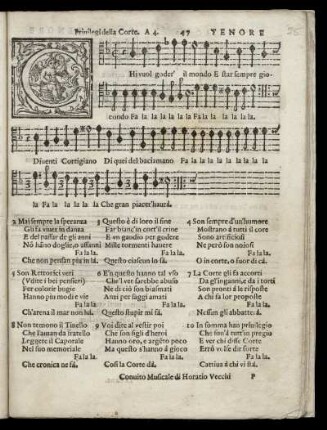 Priuilegi della Corte. A 4. 47 TENORE
C Hi vuol goder' il mondo E star sempre gio-
condo Fa la la la la la la Fa la la la la la la la
Diuenti Cortigiano Di quei del baciamano Fa la la la la la la la la
la Fa la la la la la Che gran piacer haurà.
2 Mai sempre la speranza
Gli fa viuer in danza
E del passar de gli anni
Fa la la.
Che non pensan piu in là.
3 Questo è di loro il fine
Far bianc'in cort'il crine
E in gaudio per godere
Mille tormenti hauere
Fa la la.
Questo ciascun lo sà.
4 Son sempre d'un'humore
Mostrano à tutti il core
Sono artificiosi
Ne però son noiosi
Fa la la.
O in corte, o fuor di cà.
5 Son Rettorici veri
(Vdite i bei pensieri)
Per colorir bugie
Hanno piu modi e vie
Fa la la.
Ch'arena il mar non hà.
6 E'n questo hanno tal vso
Che'l ver sarebbe abuso
In dir non bisbisanti
Ami per saggi amati
Fa la la.
Questo stupir mi fà.
7 La Corte gli fa accorti
Da gl'inganni, e da i torti
Son pronti à le risposte
A chi fa lor proposte
Fa la la.
Nessun gli abbatterà.
8 Non temono il Tinello
Che l'auanda fratello
Leggete il Caporale
Nel suo memoriale
Fa la la.
Che cronica ne fà.
9 Voi dite al vestir poi
Che son figli d'heroi
Hanno oro, e argéto poco
Ma questo s'hanno à gioco
Fa la la.
Così la Corte dà.
10 In somma han priuilegio
Che fos'à tutti in pregio
E ver chi disse Corte
Errò volse dir sorte
Fa la la.
Cattiua à chi vi stà.
Conuito Musicale di Horatio Vecchi P